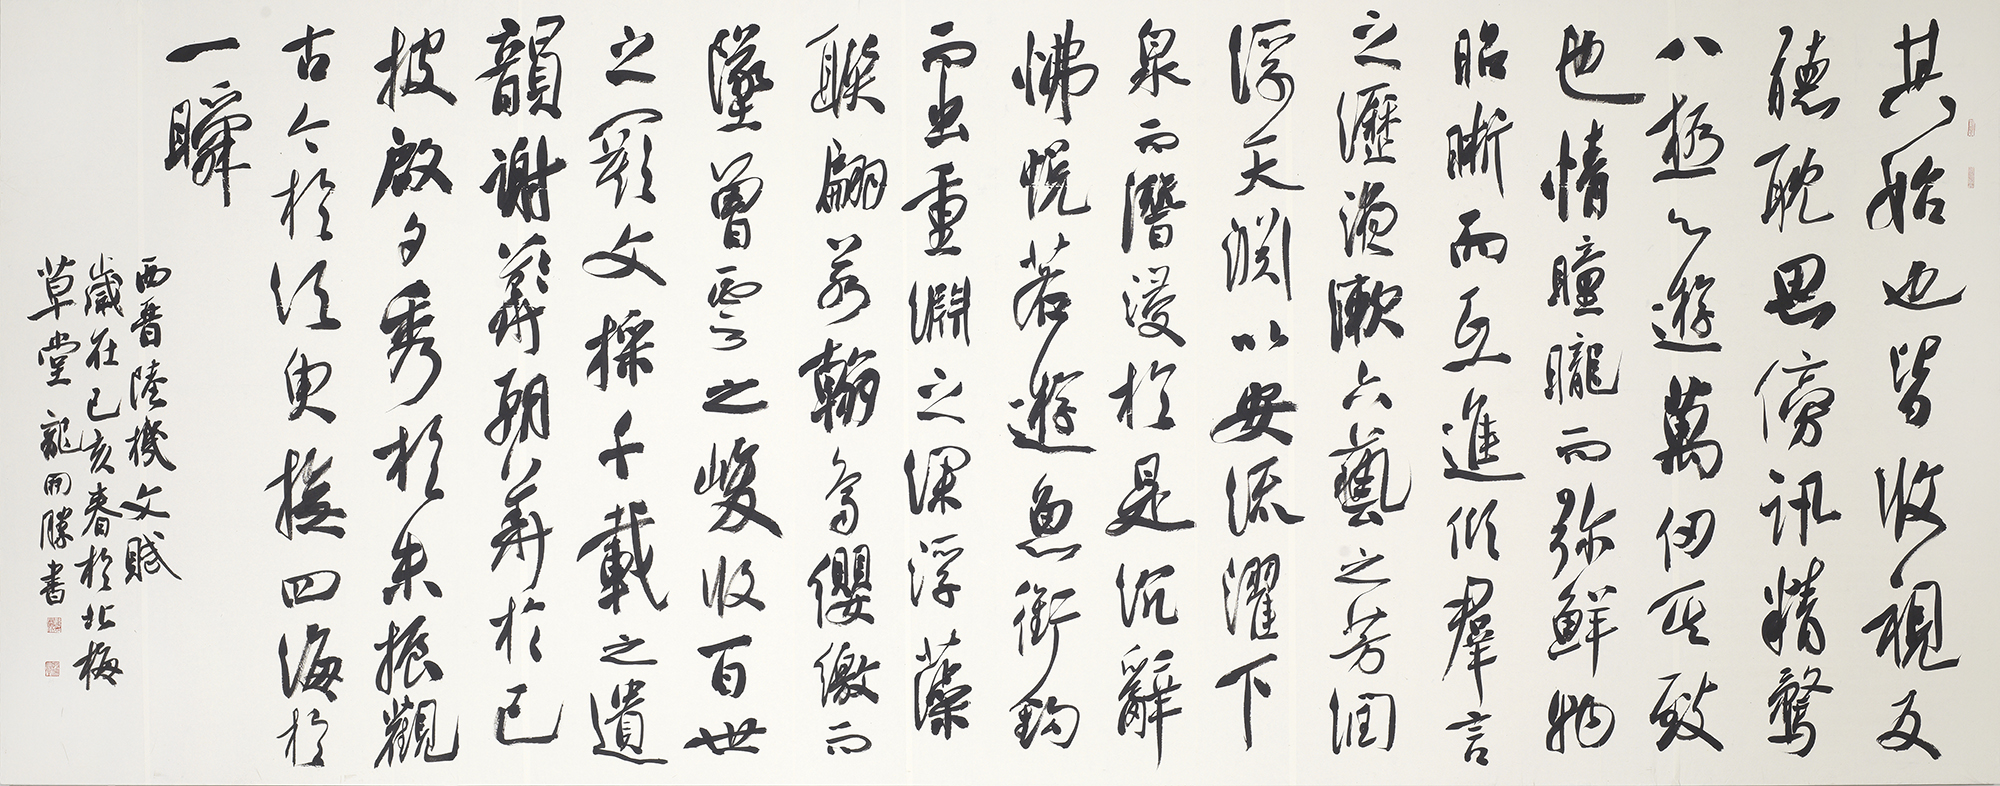 其始也皆收視反
聽耽思傍訊精騖
八極心遊萬仞其致
也情曈曨而弥鮮物
昭晰而互進傾群言
之瀝液漱六藝之芳潤
浮天淵以安流濯下
泉而潛浸於是沉辭
怫悅若遊魚銜鉤
而出重淵之深浮藻
聯翩若翰鳥纓繳而
墜曾雲之峻收百世
之闕文採千載之遺
韻謝朝華於已
披啟夕秀於未振觀
古今於須臾撫四海於
一瞬
西晉陸機文賦
歲在己亥春於北梅
草堂龍開勝書